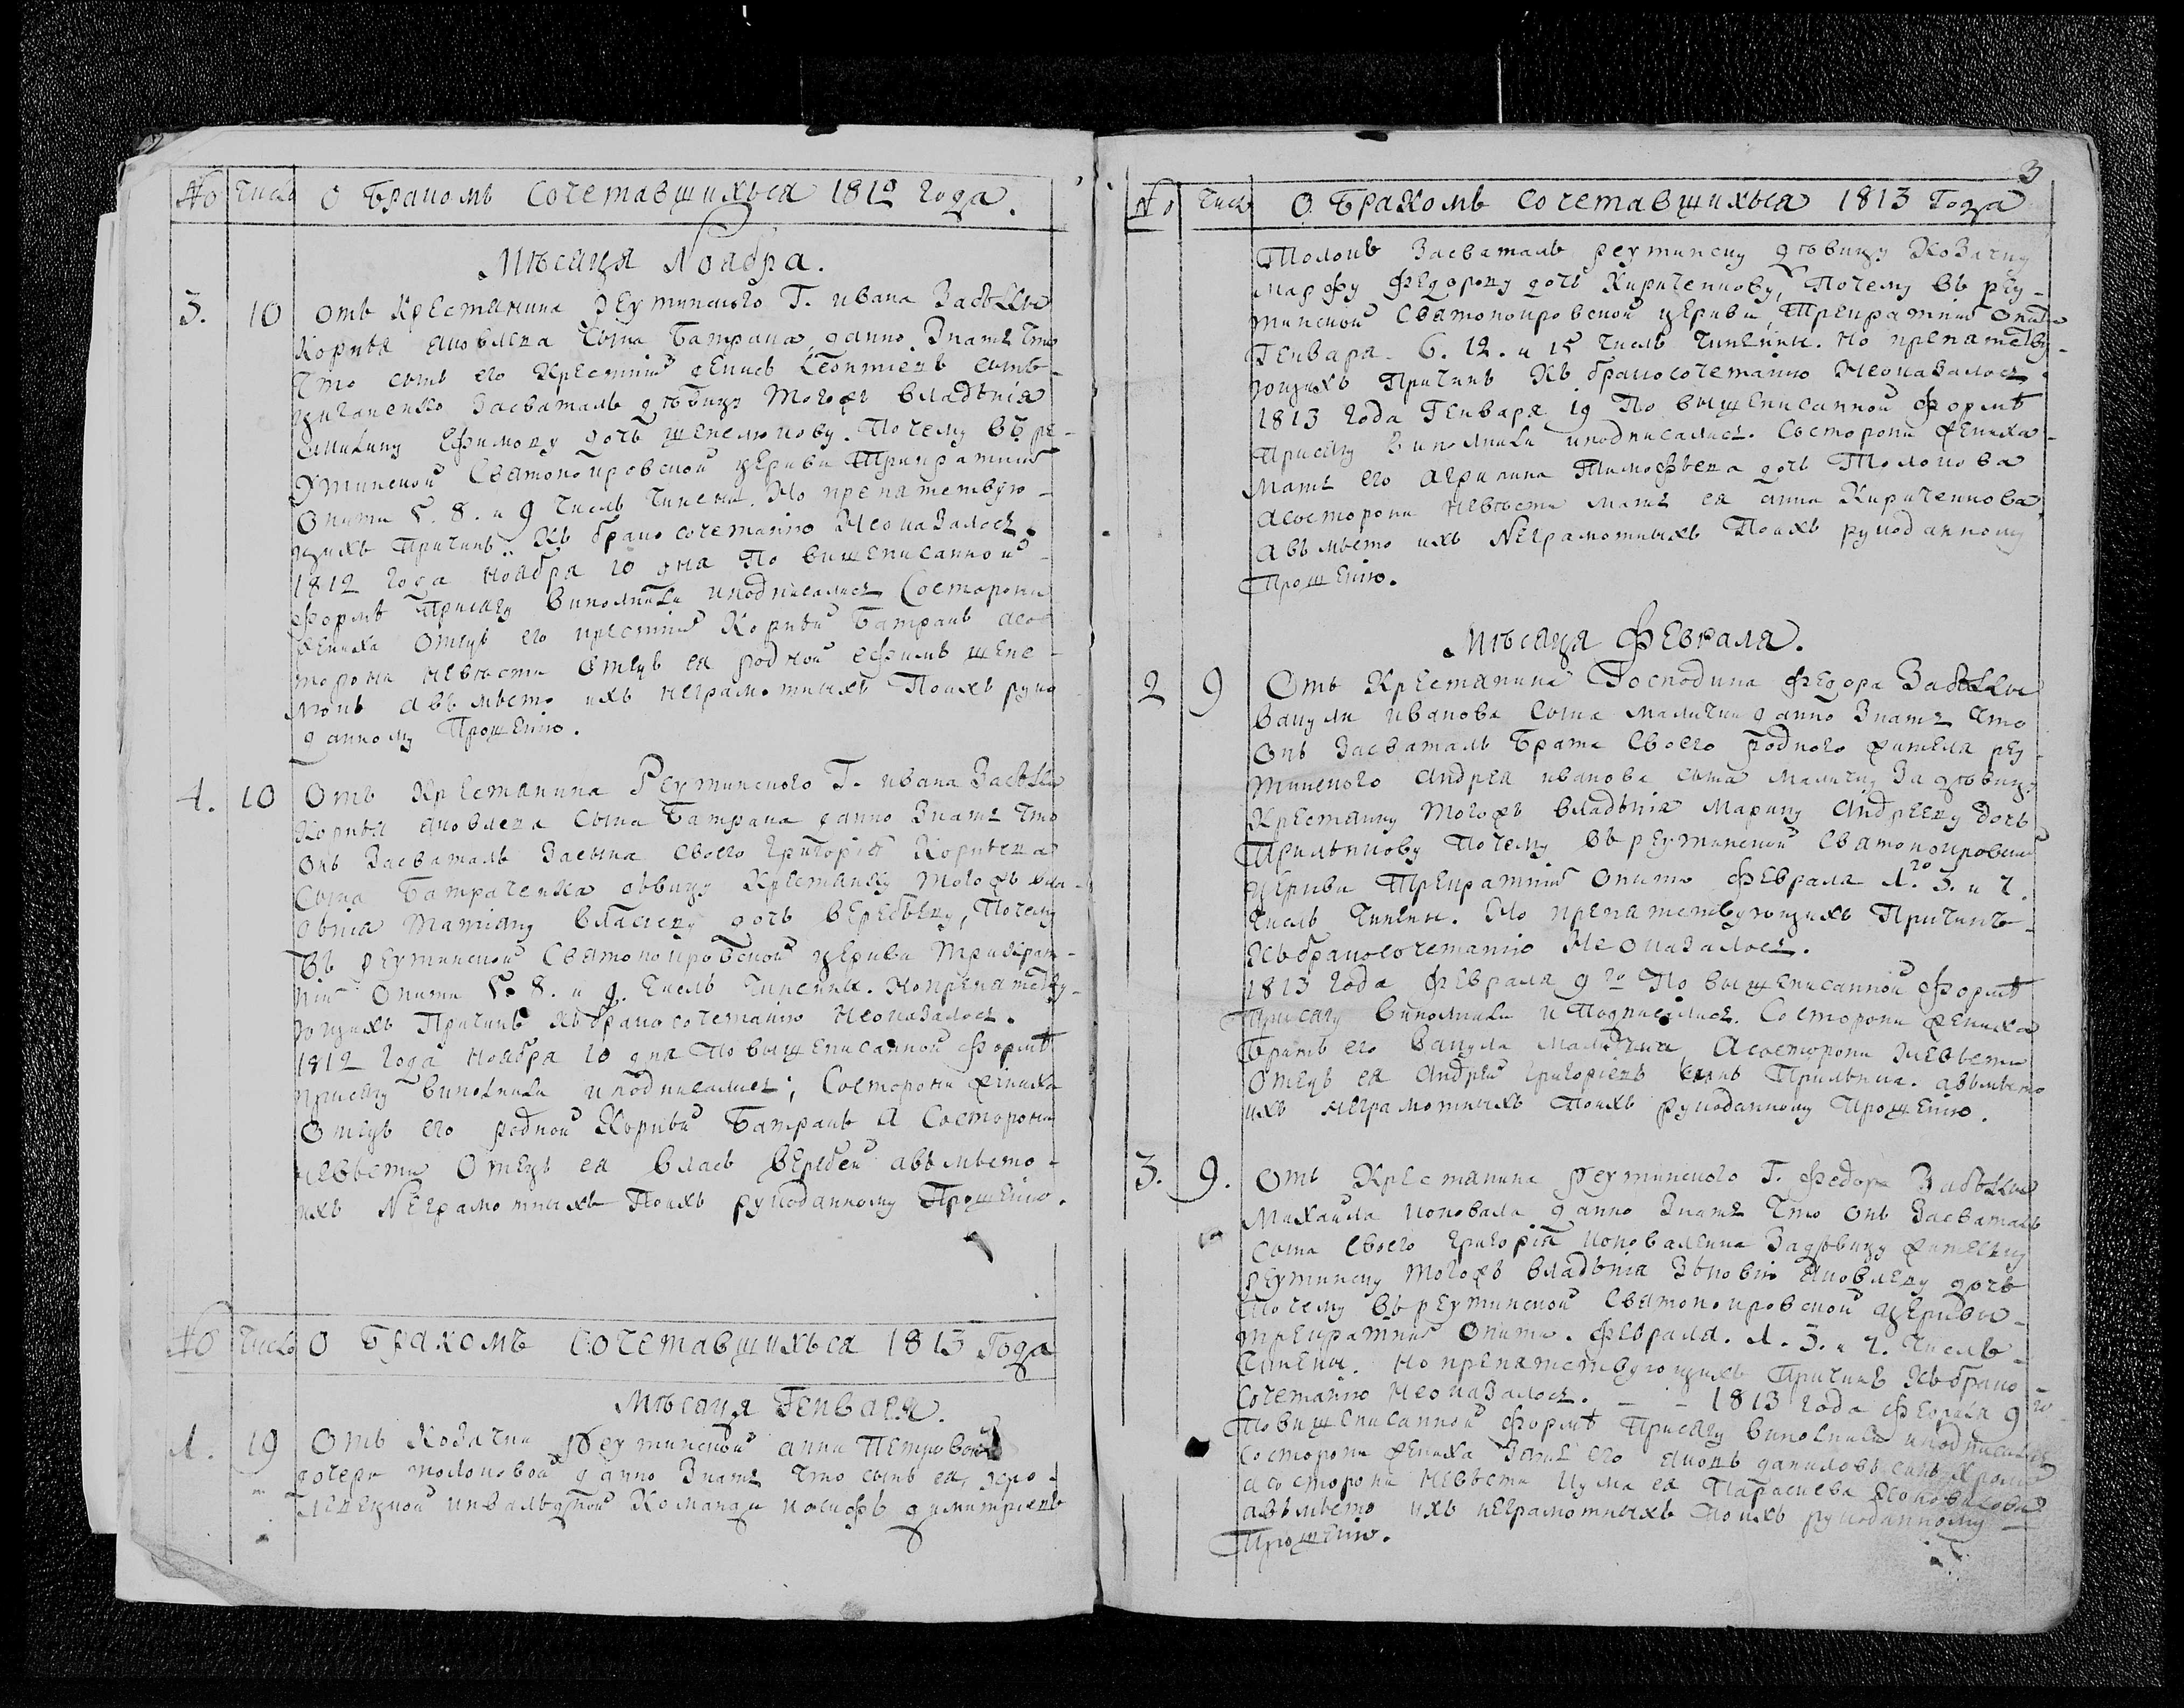 No Число О Бракомъ Сочетавшихъся 1812 года.
Мѣсяця Ноября.
3. 10 Отъ Крестянина Реутинского Г. ивана Забѣлы
Корнѣя яковлева Сына Батрана данно Знать Что
Что сынъ его Крестній Леонтиевъ сынъ
засваталъ дѣвицу тогожъ владѣнія
Ефимову дочь щепелюкову. Почему въ ре-
утинской Святопокровской церкви Трикратній
Опити 5. 8. и 9 Числъ Чинены. Но препятствую-
щихъ Причинъ Къ бракосочетанію Неоказалось.
1812 Года Ноября 10 дня По вишеписанной
формѣ Присягу виполнили иподписались Состорони
жениха Отецъ его крестній Корнѣй Батранъ асо
торони невѣсти Отецъ ея родной ефимъ щепе-
люкъ авъмѣсто ихъ неграмотныхъ Поихъ руко
данному Прошенію.
4. 10 Отъ Крестянина Реутинского Г. ивана Забѣлы
Корнѣя яковлева Сына Батрана данно Знать Что
Онъ Засваталъ Засына своего Григорія Корнѣева
Сына Батраченка дѣвицу Крестянку тогожъ вла-
дѣнія Татияну власову дочь веребѣеву, Почему
Въ реутинской Святопокровской церкви трикрат-
нии Опити 5. 8. и 9. Числъ Чинены. Но препятству-
ющихъ Причинъ къ бракосочетанію Неоказалось.
1812 Года Ноября 10 дня По вышеписанной Формѣ
присягу виполнили иподписались; Состорони жениха
Отецъ его родной Корнѣй Батранъ А Состорони
невѣсти Отецъ ея власъ веребей авъмѣсто
ихъ Неграмотныхъ Поихъ рукоданному Прошенію.
No Число О Бракомъ Сочетавшихъся 1813 Года
Мѣсяця Генваря.
1. 19 Отъ Козачки Реутинской анни Петровой
дочери толоковой данно Знать Что сынъ ея, кро-
левецкой инвалѣдной Команди иосифъ димитріевъ
3
No Число О Бракомъ сочетавшихъся 1813 Года
Толокъ Засваталъ реутинску дѣвицу Козачку
марфу Федорову дочь Кириченкову, Почему въ реу-
тинской Святопокровской церкви, Трикратній Опити
Генваря 6. 12. и 15 Числъ Чинены. Но препятству-
ющихъ Причинъ Къ бракосочетанію Неоказалось.
1813 Года Генваря 19 По вышеписанной Формѣ
Присягу виполнили иподписались. Состорони жениха
мать его Тимофѣева дочь Толокова
асосторони невѣсти мать ея анна Кириченкова
авъмѣсто ихъ Неграмотныхъ Поихъ рукоданному
Прошенію.
Мѣсяця Февраля.
2 9 Отъ Крестянина Господина Федора Забѣлы
Вакули иванова Сына малички данно Знать Что
Онъ Засваталъ Брата Своего родного жителя реу-
тинского Андрея иванова сына маличку За дѣвицу
Крестянку тогожъ владѣнія Марину Андрееву дочь
Прилѣпкову Почему въ реутинской Святопокровской
церкви Трикратній Опити Февраля 1. 3. и 7.
Числъ Чинены. Но препятствующихъ Причинъ
Къбракосочетанію Не оказалось.
1813 Года Февраля 9 го По вышеписанной Формѣ
Присягу виполнили и Подписались. Состорони жениха
Братъ его Вакула маличка, Асосторони Невѣсти
Отецъ ея Андрей григориевъ сынъ Прилѣпка. авъмѣсто
ихъ неграмотныхъ Поихъ рукоданному Прошенію.
3. 9. Отъ Крестянина Реутинского Г. Федора Забѣлы
Михайла Коновала данно Знать Что онъ Засваталъ
Сына Своего григорія Коноваленка Задѣвицу жителку
реутинску тогожъ владѣнія Зѣновію яковлеву дочь
Почему въ реутинской Святопокровской церкви
трикратній Опити. Февраля. 1. 3. и 7. Числъ
Чинены. Но препятствующихъ Причинъ Къбрако
сочетанію Неоказалось. - - 1813 Года Февраля 9 го
Повишеписанной Формѣ Присягу виполнили иподписались
состорони жениха Зять его яковъ даниловъ синъ
а состорони невѣсти кума ея Параскева Коновалова
авъмѣсто ихъ неграмотныхъ Поихъ рукоданному
Прошенію.